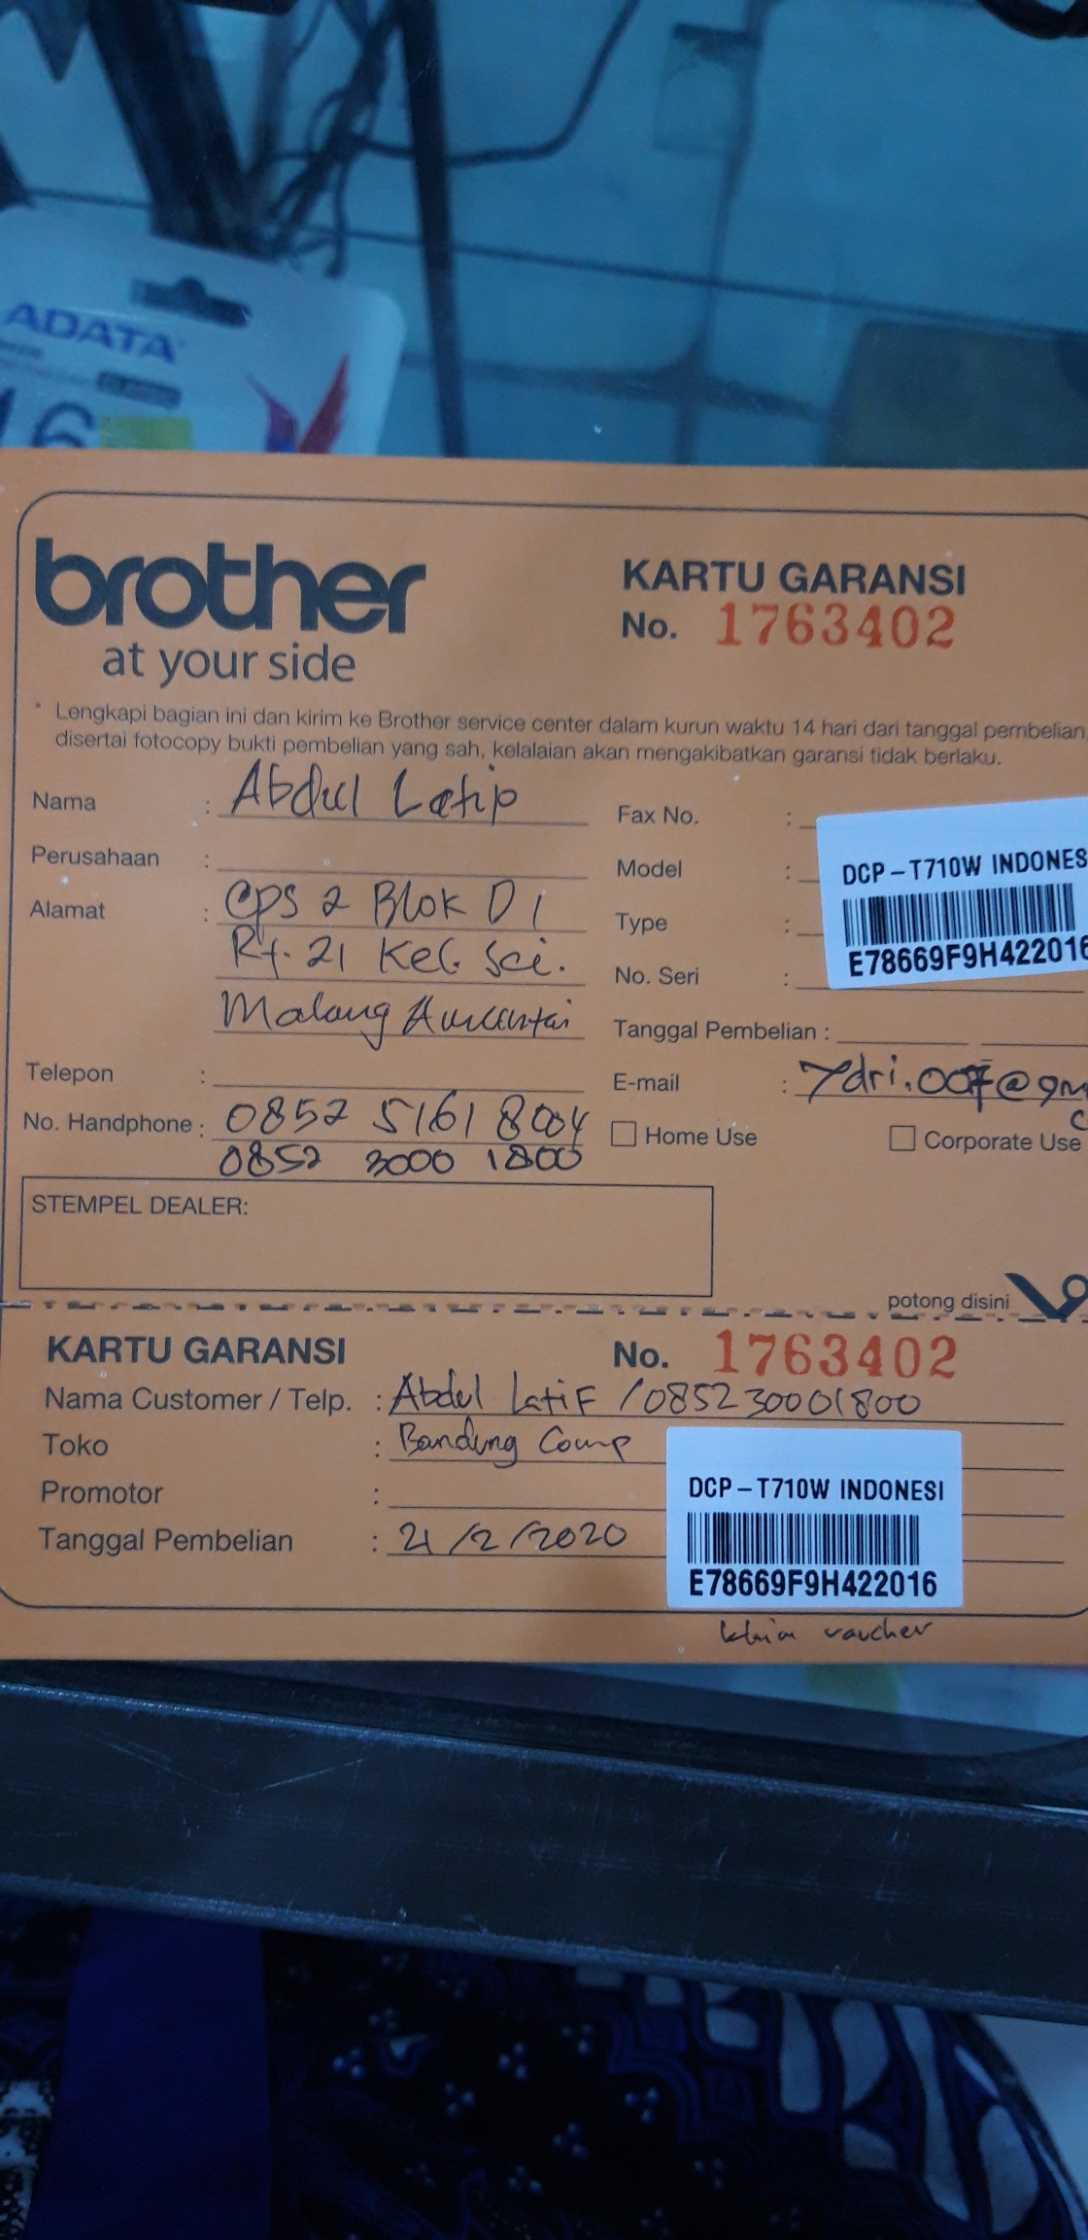 ADATA
16
brother
at your side
KARTU GARANSI
No. 1763402
* Lengkapi bagian ini dan kirim ke Brother service center dalam kurun waktu 14 hari dari tanggal pembelian
disertai fotocopy bukti pembelian yang sah, kelalaian akan mengakibatkan garansi tidak berlaku.
Nama : Abdul Latip
Perusahaan :
Alamat : CPS 2 Blok D 1
Rt. 21 Kel. Sei.
Malang Amuntai
Telepon :
No. Handphone : 0852 5161 8004
0852 3000 1800
Fax No. :
Model :
Type :
No. Seri :
DCP-T710W INDONES
E78669F9H422016
Tanggal Pembelian :
E-mail : 7dri.007@gm
Home Use
Corporate Use
STEMPEL DEALER:
potong disini
KARTU GARANSI
No. 1763402
Nama Customer / Telp. : Abdul Latif / 085230001800
Toko : Bandung Comp
Promotor :
Tanggal Pembelian : 21/2/2020
DCP-T710W INDONESI
E78669F9H422016
klaim voucher